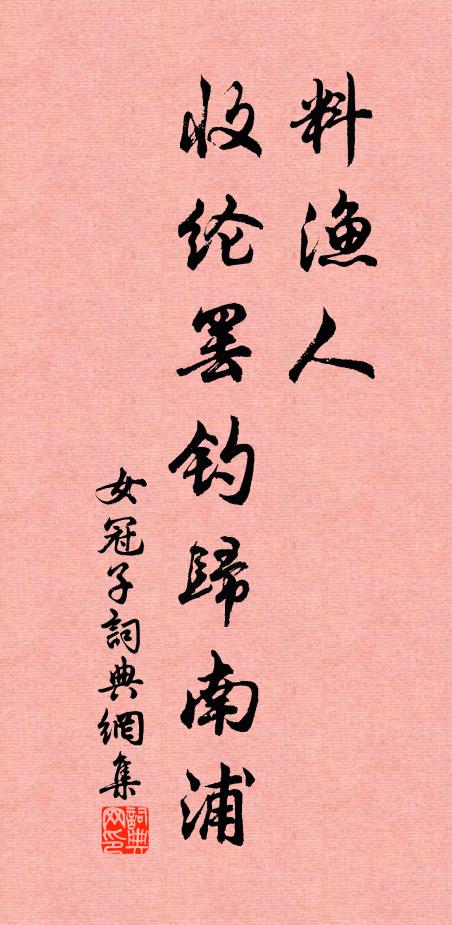 料渔人
收纶罢钓歸南浦
女冠子詞典網集
詞典网印